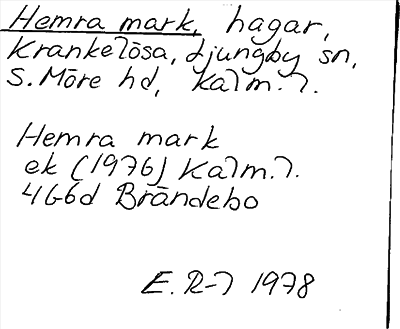 Hemra mark, hagar,
Krankelösa, Ljungby sn,
S. Möre hd, Kalm. l.
Hemra mark
ek (1976) Kalm. l.
4G6d Brändebo
E. R-l 1978